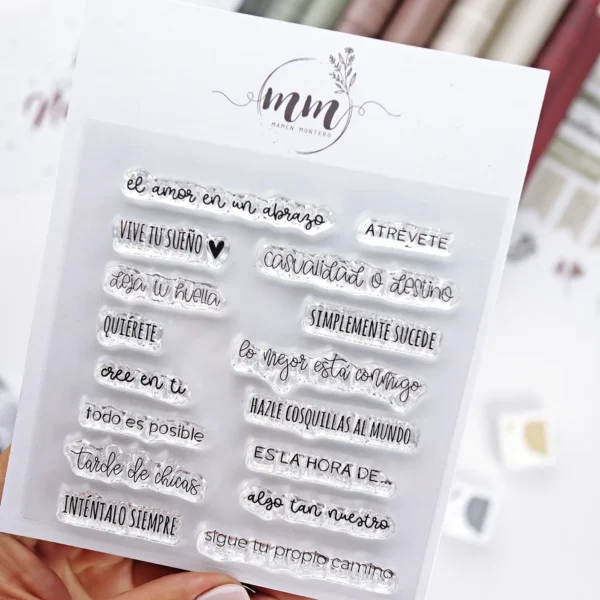 mm
MAMEN MONTERO
el amor en un abrazo
VIVE TU SUEÑO
deja tu huella
QUIÉRETE
cree en ti
todo es posible
tarde de chicas
INTÉNTALO SIEMPRE
ATRÉVETE
casualidad o destino
SIMPLEMENTE SUCEDE
lo mejor esta conmigo
HAZLE COSQUILLAS AL MUNDO
ES LA HORA DE...
algo tan nuestro
sigue tu propio camino